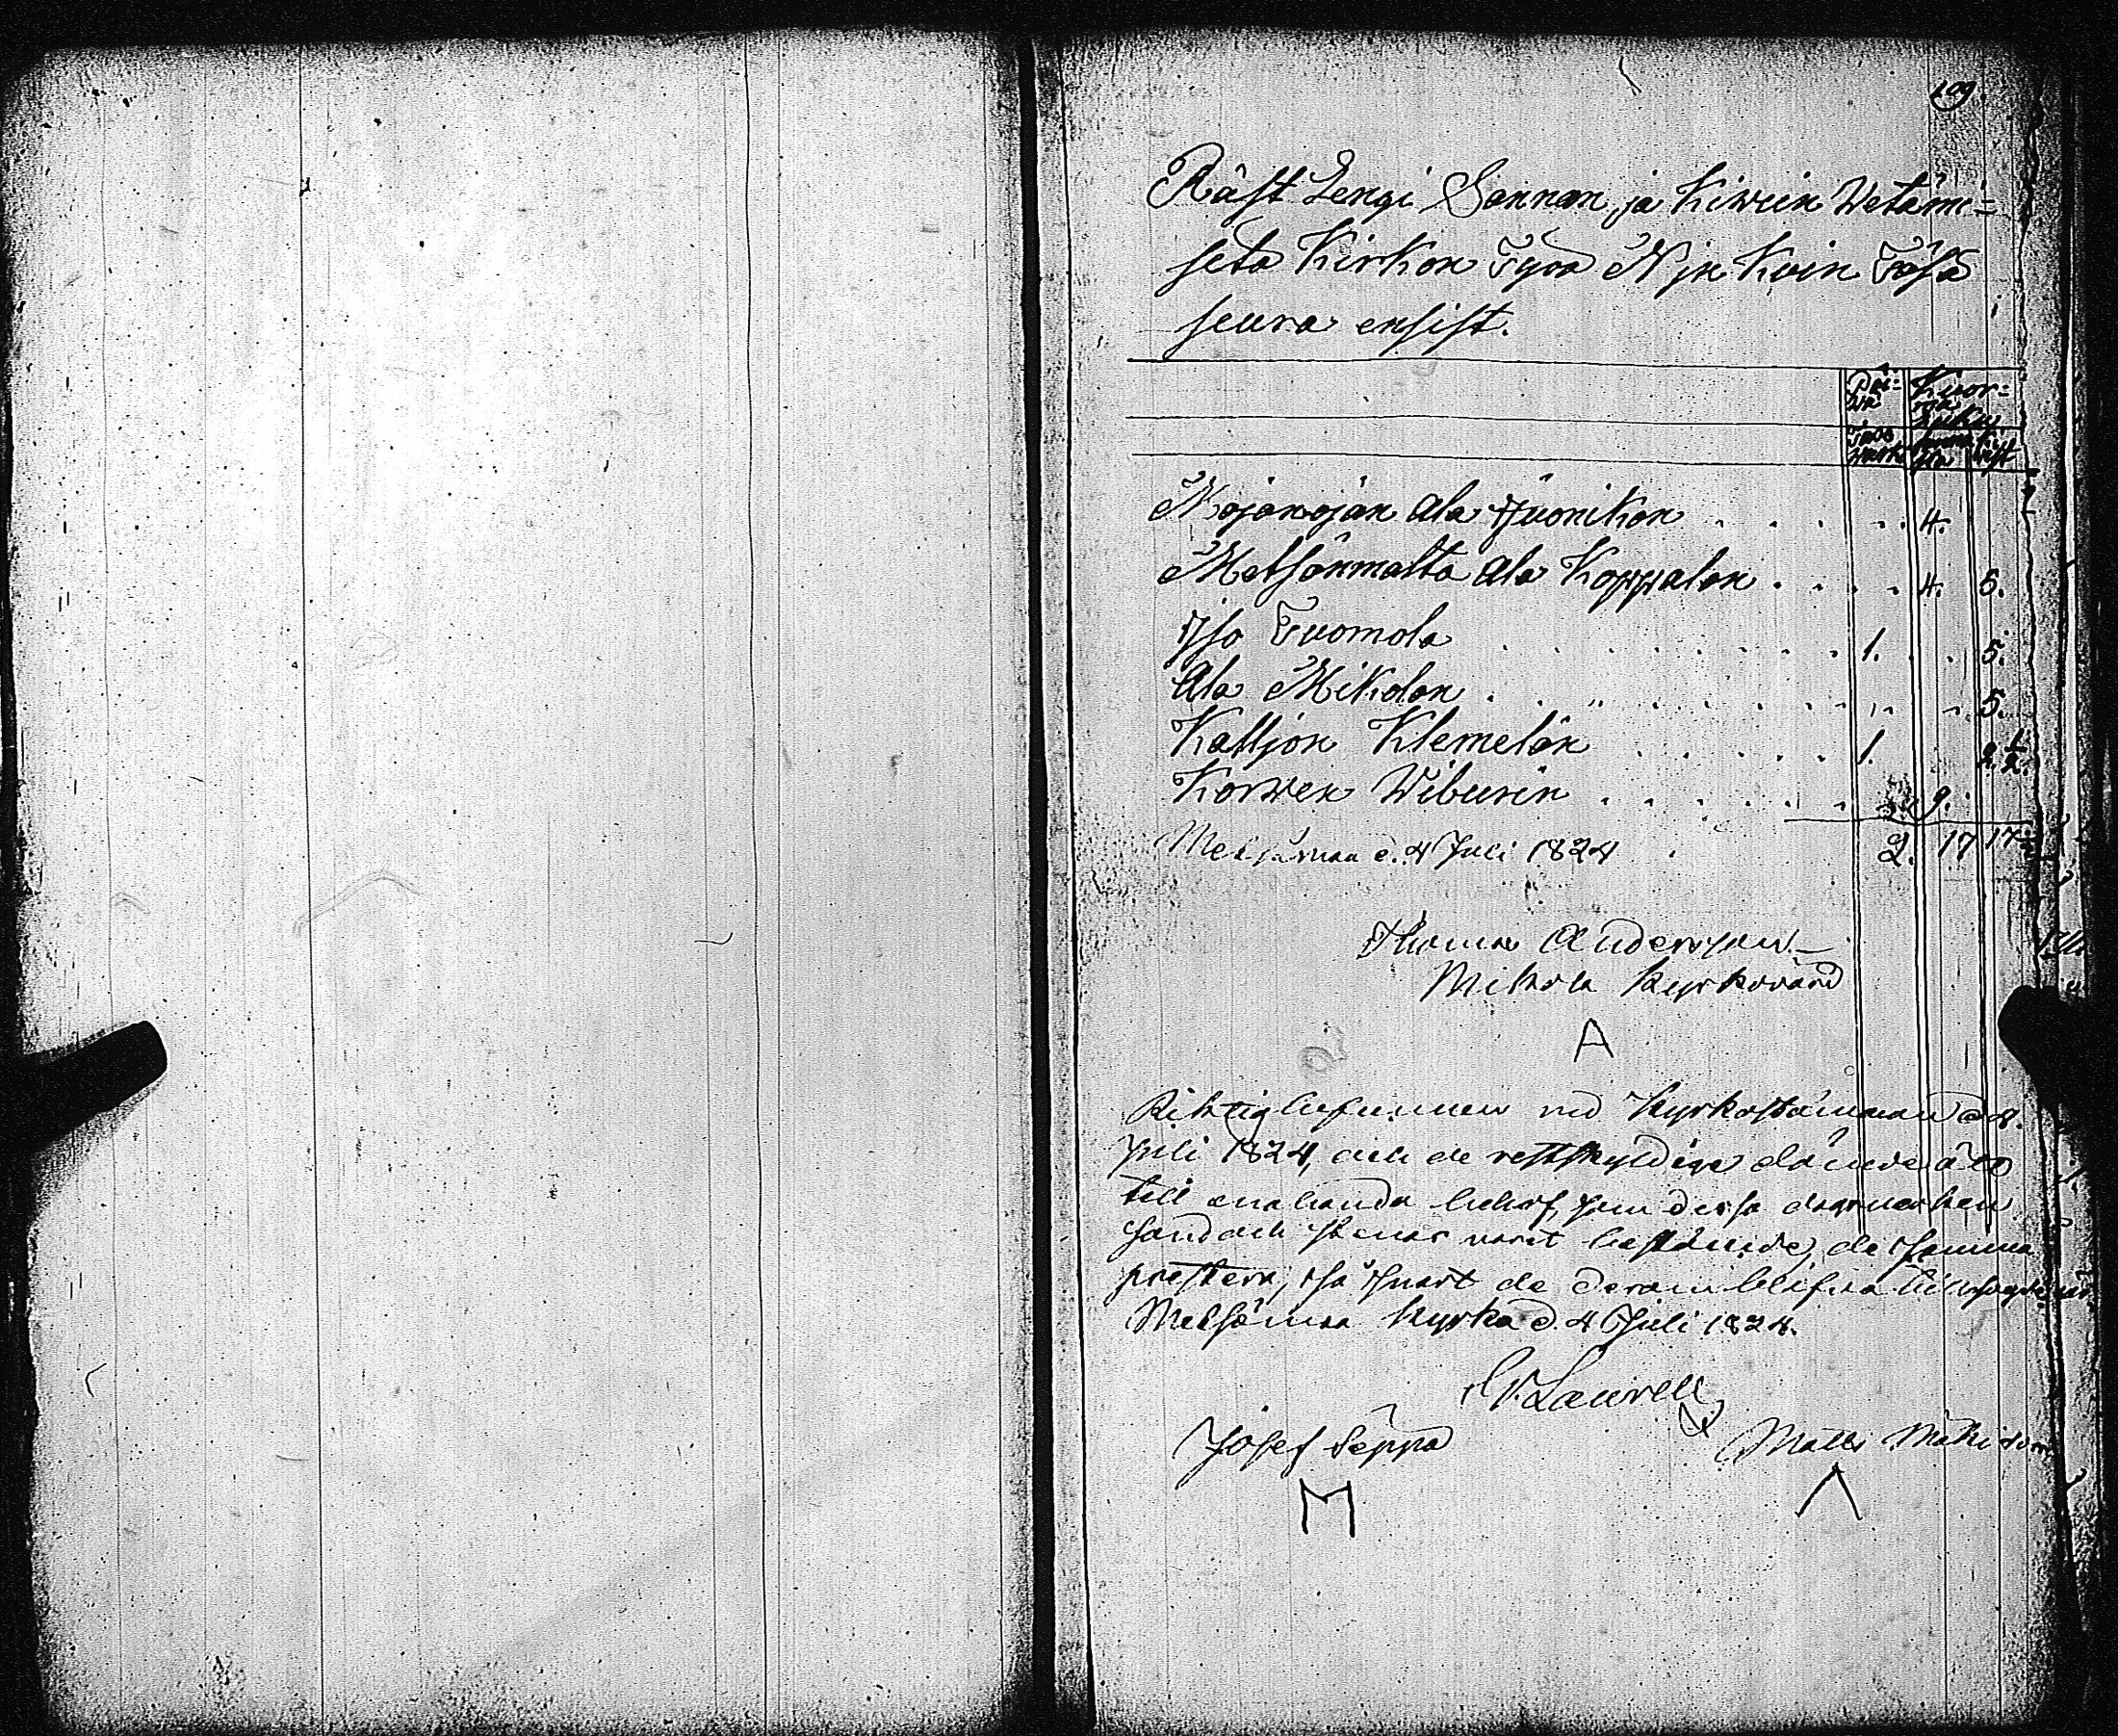 109
Räst Lengi Sannan, ja Kiwein Wetämi=
seta Kirkon Työä Nijn Kuin Täsä
seura ensist.
Päi= Kuor=
wä man
luku
Kojanojan Ala Juonikon . . . . . 4.
Metsänmalta Ala Koppalan . . . . 4. 5.
Iso Tuomola . . . . . . . . 1. . . 5.
Ala Mikolan . . " . . . . . . " . 5.
Kalljon Klemelän . . . . . 1. 2. ½.
Korwen Wiburin . . . . . . 9.
Metsämaa d. 4 Juli 1824 . 2. 17 17½
Thomas Andersson
Mikola Kyrkovärd
A
Riktig befunnen vid Kyrkostämman d. 4.
Juli 1824, och de restskyldige
till enahanda behof, som dessa dagsverken
sand och stenar varit bestämde, de samma
prestera, så snart de derom blifva
Metsämaa Kyrka d. 4 Juli 1824.
Laurell
Josef Seppä Matts
M Λ